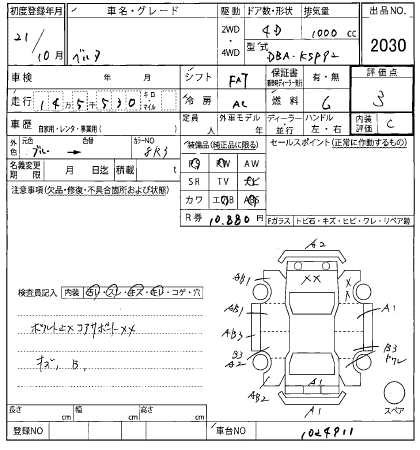 初度登録年月 車名・グレード 駆動 ドア数・形状 排気量 出品NO.
21/10月 ベルタ 2WD・4WD 4D 1000cc 2030
型式 DBA-KSP92
車検 年 月 シフト FAT 保証書 有・無 評価点 3
走行 145530 キロ マイル 冷房 AC 燃料 G
車歴 自家用・レンタ・事業用( ) 定員 人 外車モデル 年 ディーラー 並行 ハンドル 左・右 内装評価 C
外色 元色 ブルー → 色替 カラーNO 8R3
装備品(純正品に限る) セールスポイント(正常に作動するもの)
名義変更期限 月 日迄 積載 t
PS PW AW
注意事項(欠品・修復・不具合箇所および状態)
SR TV ナビ
カワ エアB ABS
R券 10,880円 Fガラス トビ石・キズ・ヒビ・ワレ・リペア跡
A2
AB1 XX X X
AB1 A1
AB3
B3 A2 B3 ワレ
AB2 A1
A1
スペア
検査員記入 内装 ・コゲ・穴
キズ、B.
長さ cm 幅 cm 高さ cm
登録NO 車台NO 1024911